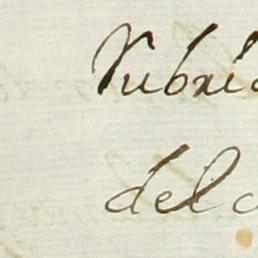 Rubri
del